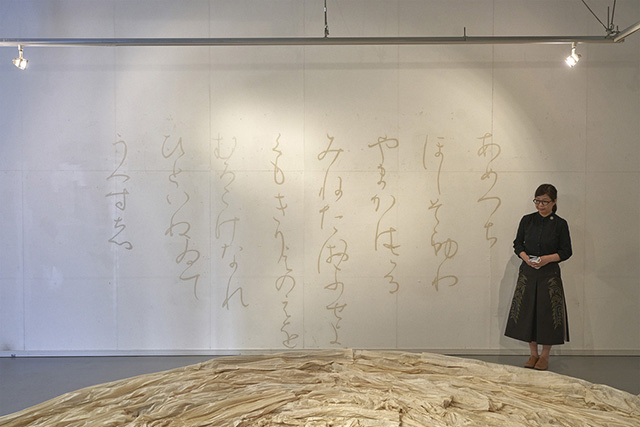 あめつち
ほしそらゆわ
やまかはさる
みねたにおふせよ
くもきりえのえを
むろこけなれ
ひといぬゐて
うへすゑ